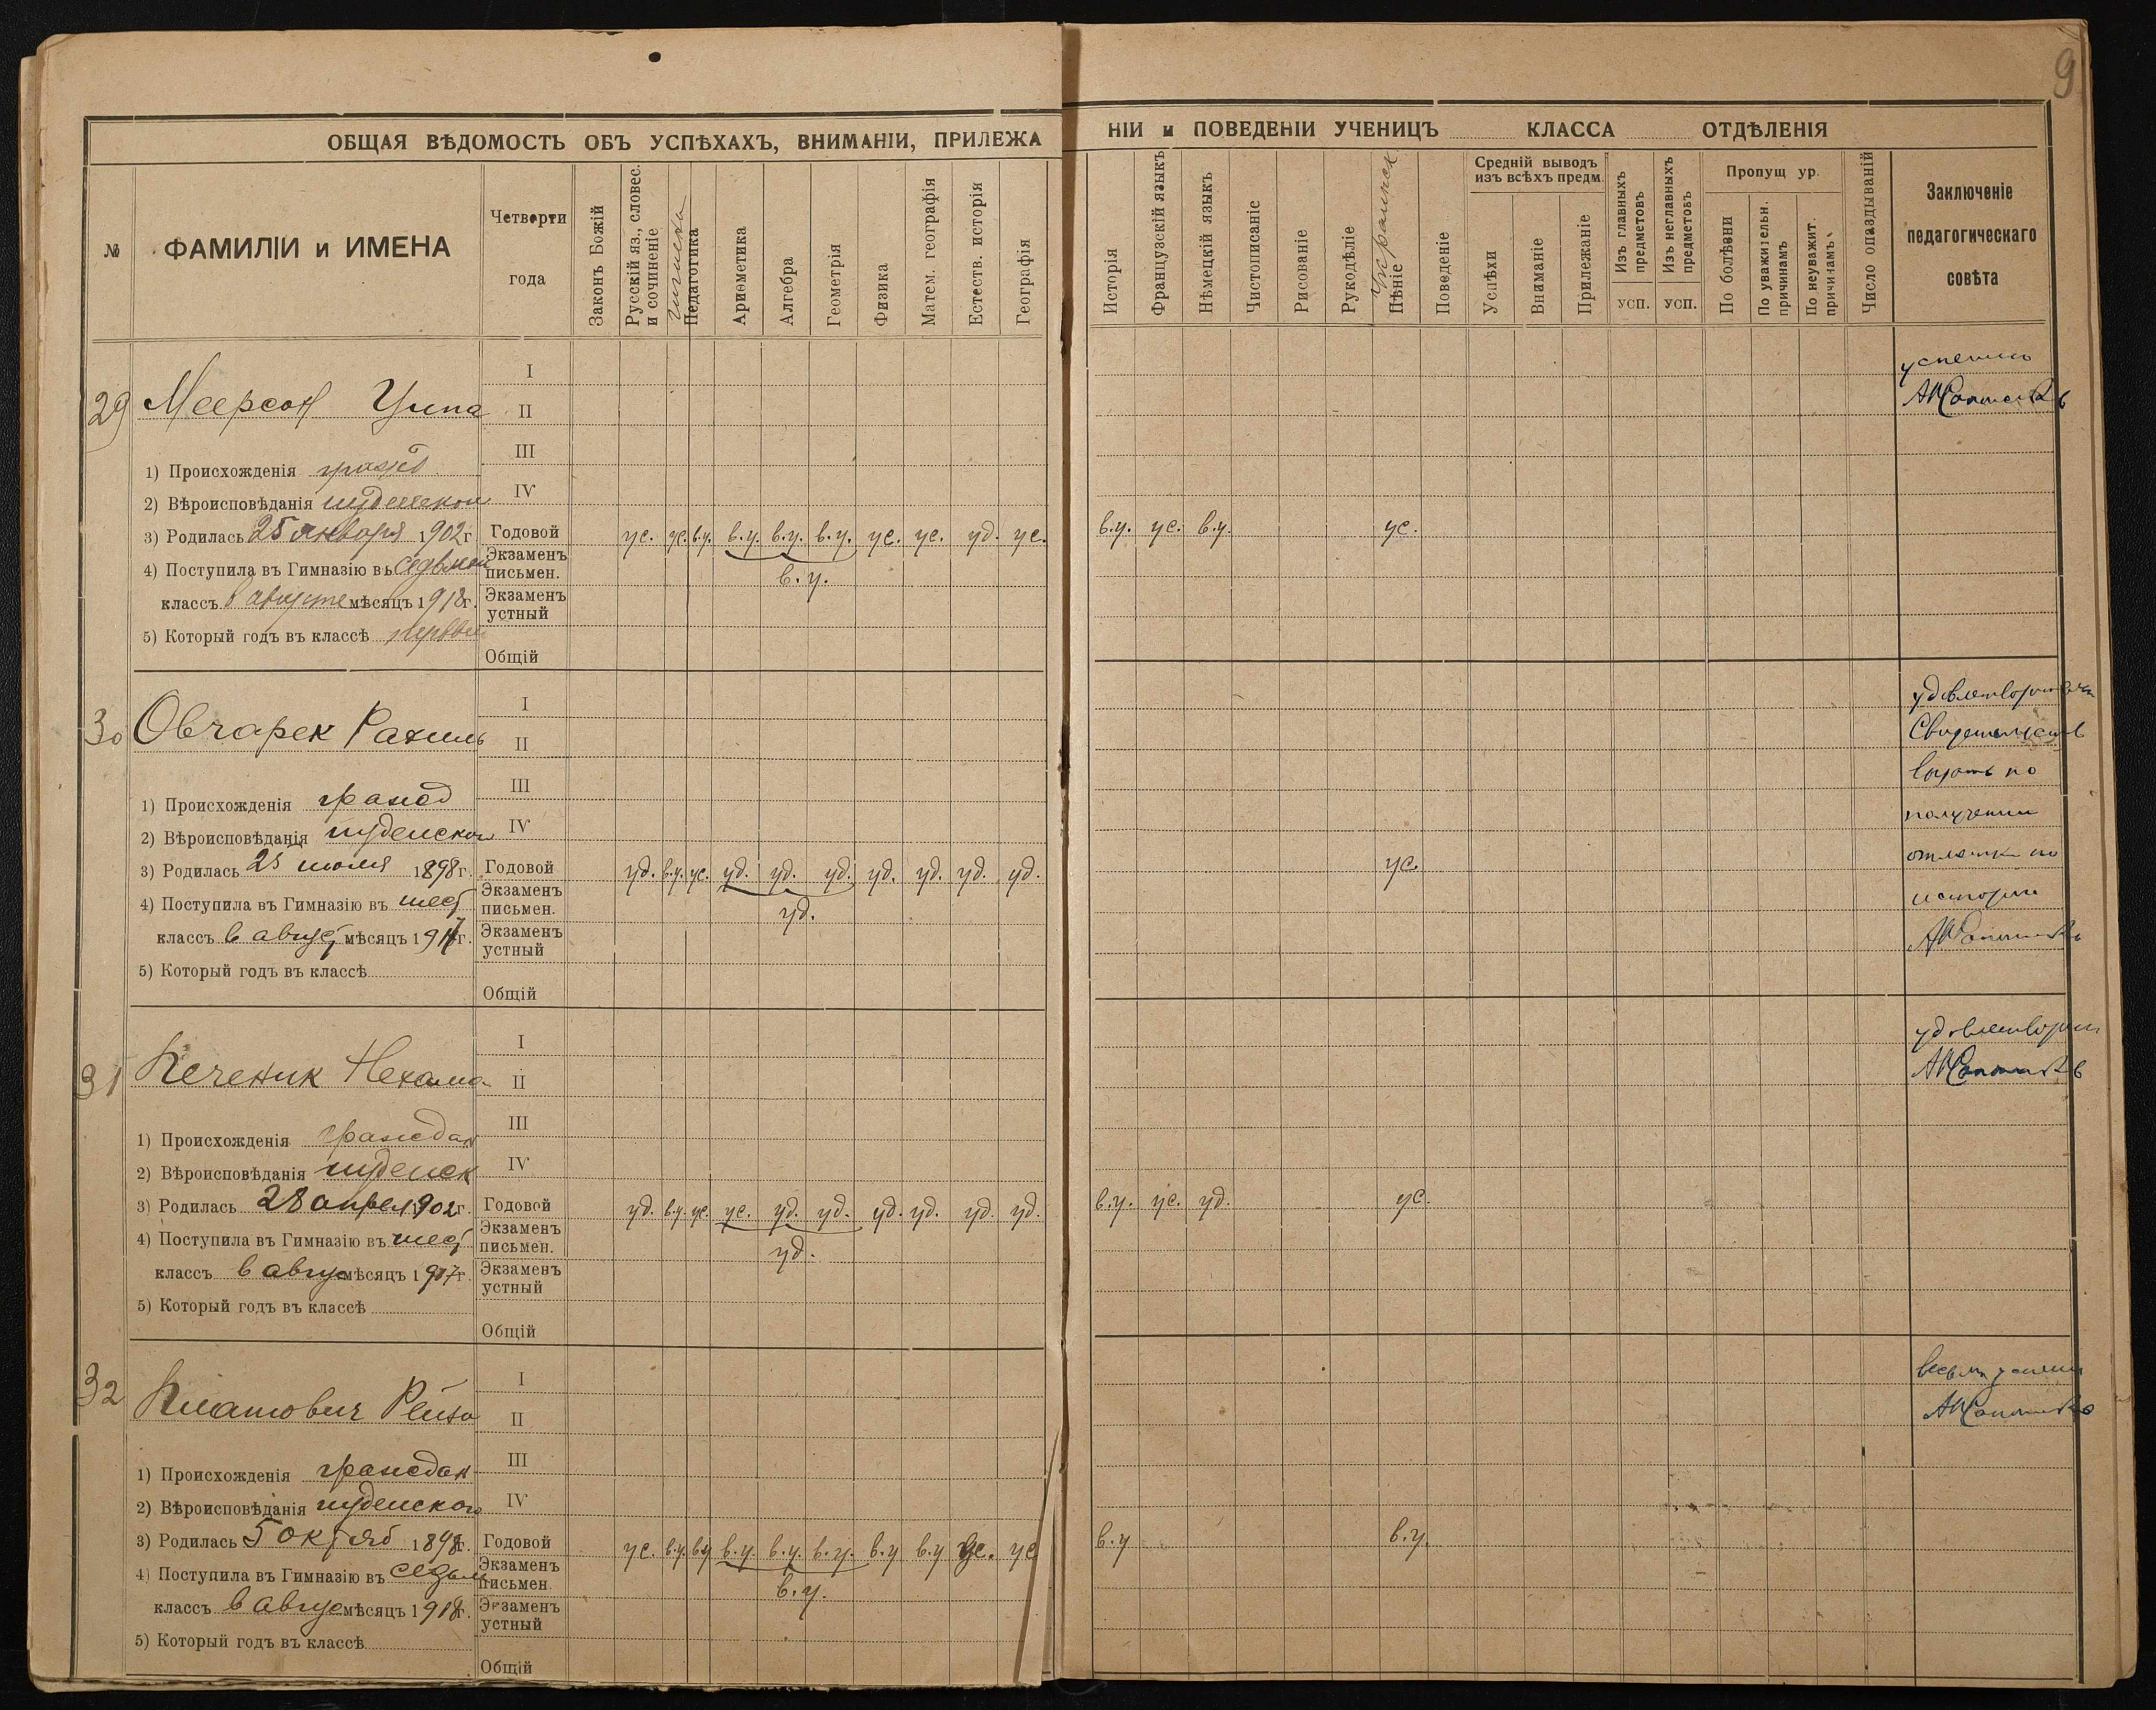 9
ОБЩАЯ ВѢДОМОСТЬ ОБЪ УСПѢХАХЪ, ВНИМАНІИ, ПРИЛЕЖА
НІИ и ПОВЕДЕНІИ УЧЕНИЦЪ КЛАССА ОТДѢЛЕНІЯ
№
ФАМИЛІИ и ИМЕНА
Четверти
года
Законъ Божій
Русскій яз., словес.
и сочиненіе
гигиена
Педагогика
Ариѳметика
Алгебра
Геометрія
Физика
Матем. географія
Естеств. исторія
Географія
Исторія
Французскій языкъ
Нѣмецкій языкъ
Чистописаніе
Рисованіе
Рукодѣліе
Украинск
Пѣніе
Поведеніе
Средній выводъ
изъ всѣхъ предм.
Успѣхи
Вниманіе
Прилежаніе
Изъ главныхъ
предметовъ
усп.
Изъ неглавныхъ
предметовъ
усп.
Пропущ ур.
По болѣзни
По уважительн.
причинамъ
По неуважит.
причинамъ
Число опаздываній
Заключеніе
педагогическаго
совѣта
29 Меерсон Ципа
I
II
III
IV
1) Происхожденія гражд
2) Вѣроисповѣданія иудейскои
3) Родилась 25 января 1902г.
4) Поступила въ Гимназію въ седьмой
классъ в августе мѣсяцъ 1918г.
5) Который годъ въ классѣ первый
Годовой ус. ус. в.у. в.у. в.у. в.у. ус. ус. уд. ус. в.у. ус. в.у. ус.
Экзаменъ
письмен. в.у.
Экзаменъ
устный
Общій
успешно
30 Овчарек Рахиль
I
II
III
IV
1) Происхожденія гражд
2) Вѣроисповѣданія иудейскои
3) Родилась 25 июля 1898г.
4) Поступила въ Гимназію въ шест
классъ в август мѣсяцъ 1917г.
5) Который годъ въ классѣ
Годовой уд. в.у. ус. уд. уд. уд. уд. уд. уд. уд. ус.
Экзаменъ
письмен. уд.
Экзаменъ
устный
Общій
Свидетельств
выдать по
получении
отметки по
истории
31 Печеник Нехама
I
II
III
IV
1) Происхожденія граждан
2) Вѣроисповѣданія иудейск
3) Родилась 28 апрел 1902г.
4) Поступила въ Гимназію въ шест
классъ в авгус мѣсяцъ 1917г.
5) Который годъ въ классѣ
Годовой уд. в.у. ус. ус. уд. уд. уд. уд. уд. уд. в.у. ус. уд. ус.
Экзаменъ
письмен. уд.
Экзаменъ
устный
Общій
32 Рейза
I
II
III
IV
1) Происхожденія граждан
2) Вѣроисповѣданія иудейского
3) Родилась 5 октяб 1898г.
4) Поступила въ Гимназію въ седьм
классъ в авгус мѣсяцъ 1918г.
5) Который годъ въ классѣ
Годовой ус. в.у. в.у. в.у. в.у. в.у. в.у. в.у. ус. ус. в.у. в.у.
Экзаменъ
письмен. в.у.
Экзаменъ
устный
Общій